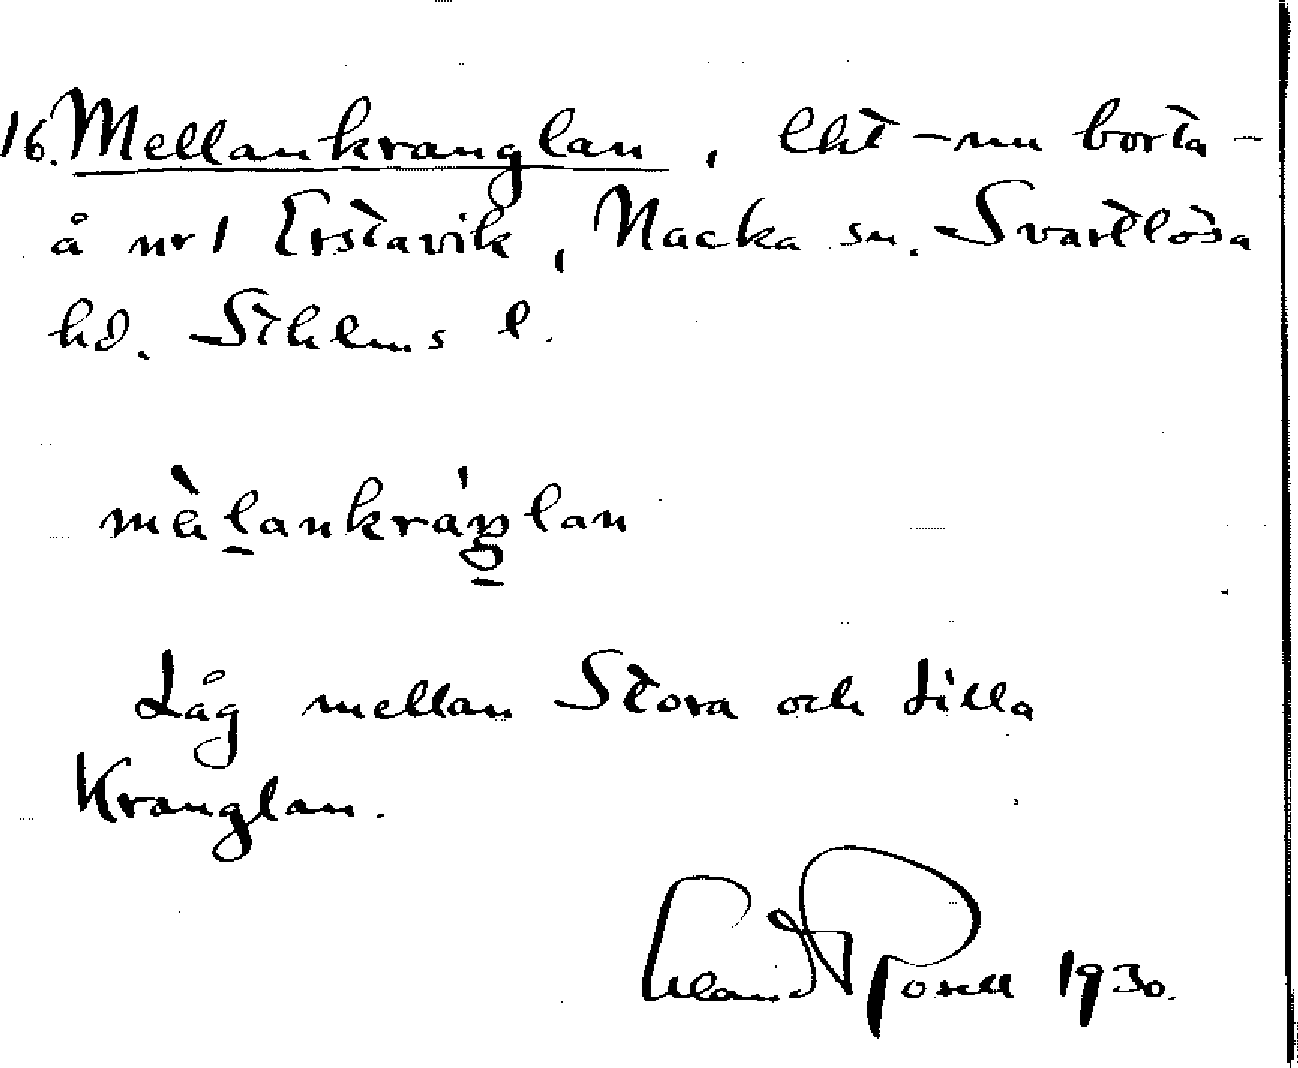 16. Mellankranglan, lht – nu borta –
å nr 1 Erstavik, Nacka sn. Svartlösa
hd. Sthlms l.
mä̀lankráŋlan
Låg mellan Stora och Lilla
Kranglan.
Erland Rosell 1930.